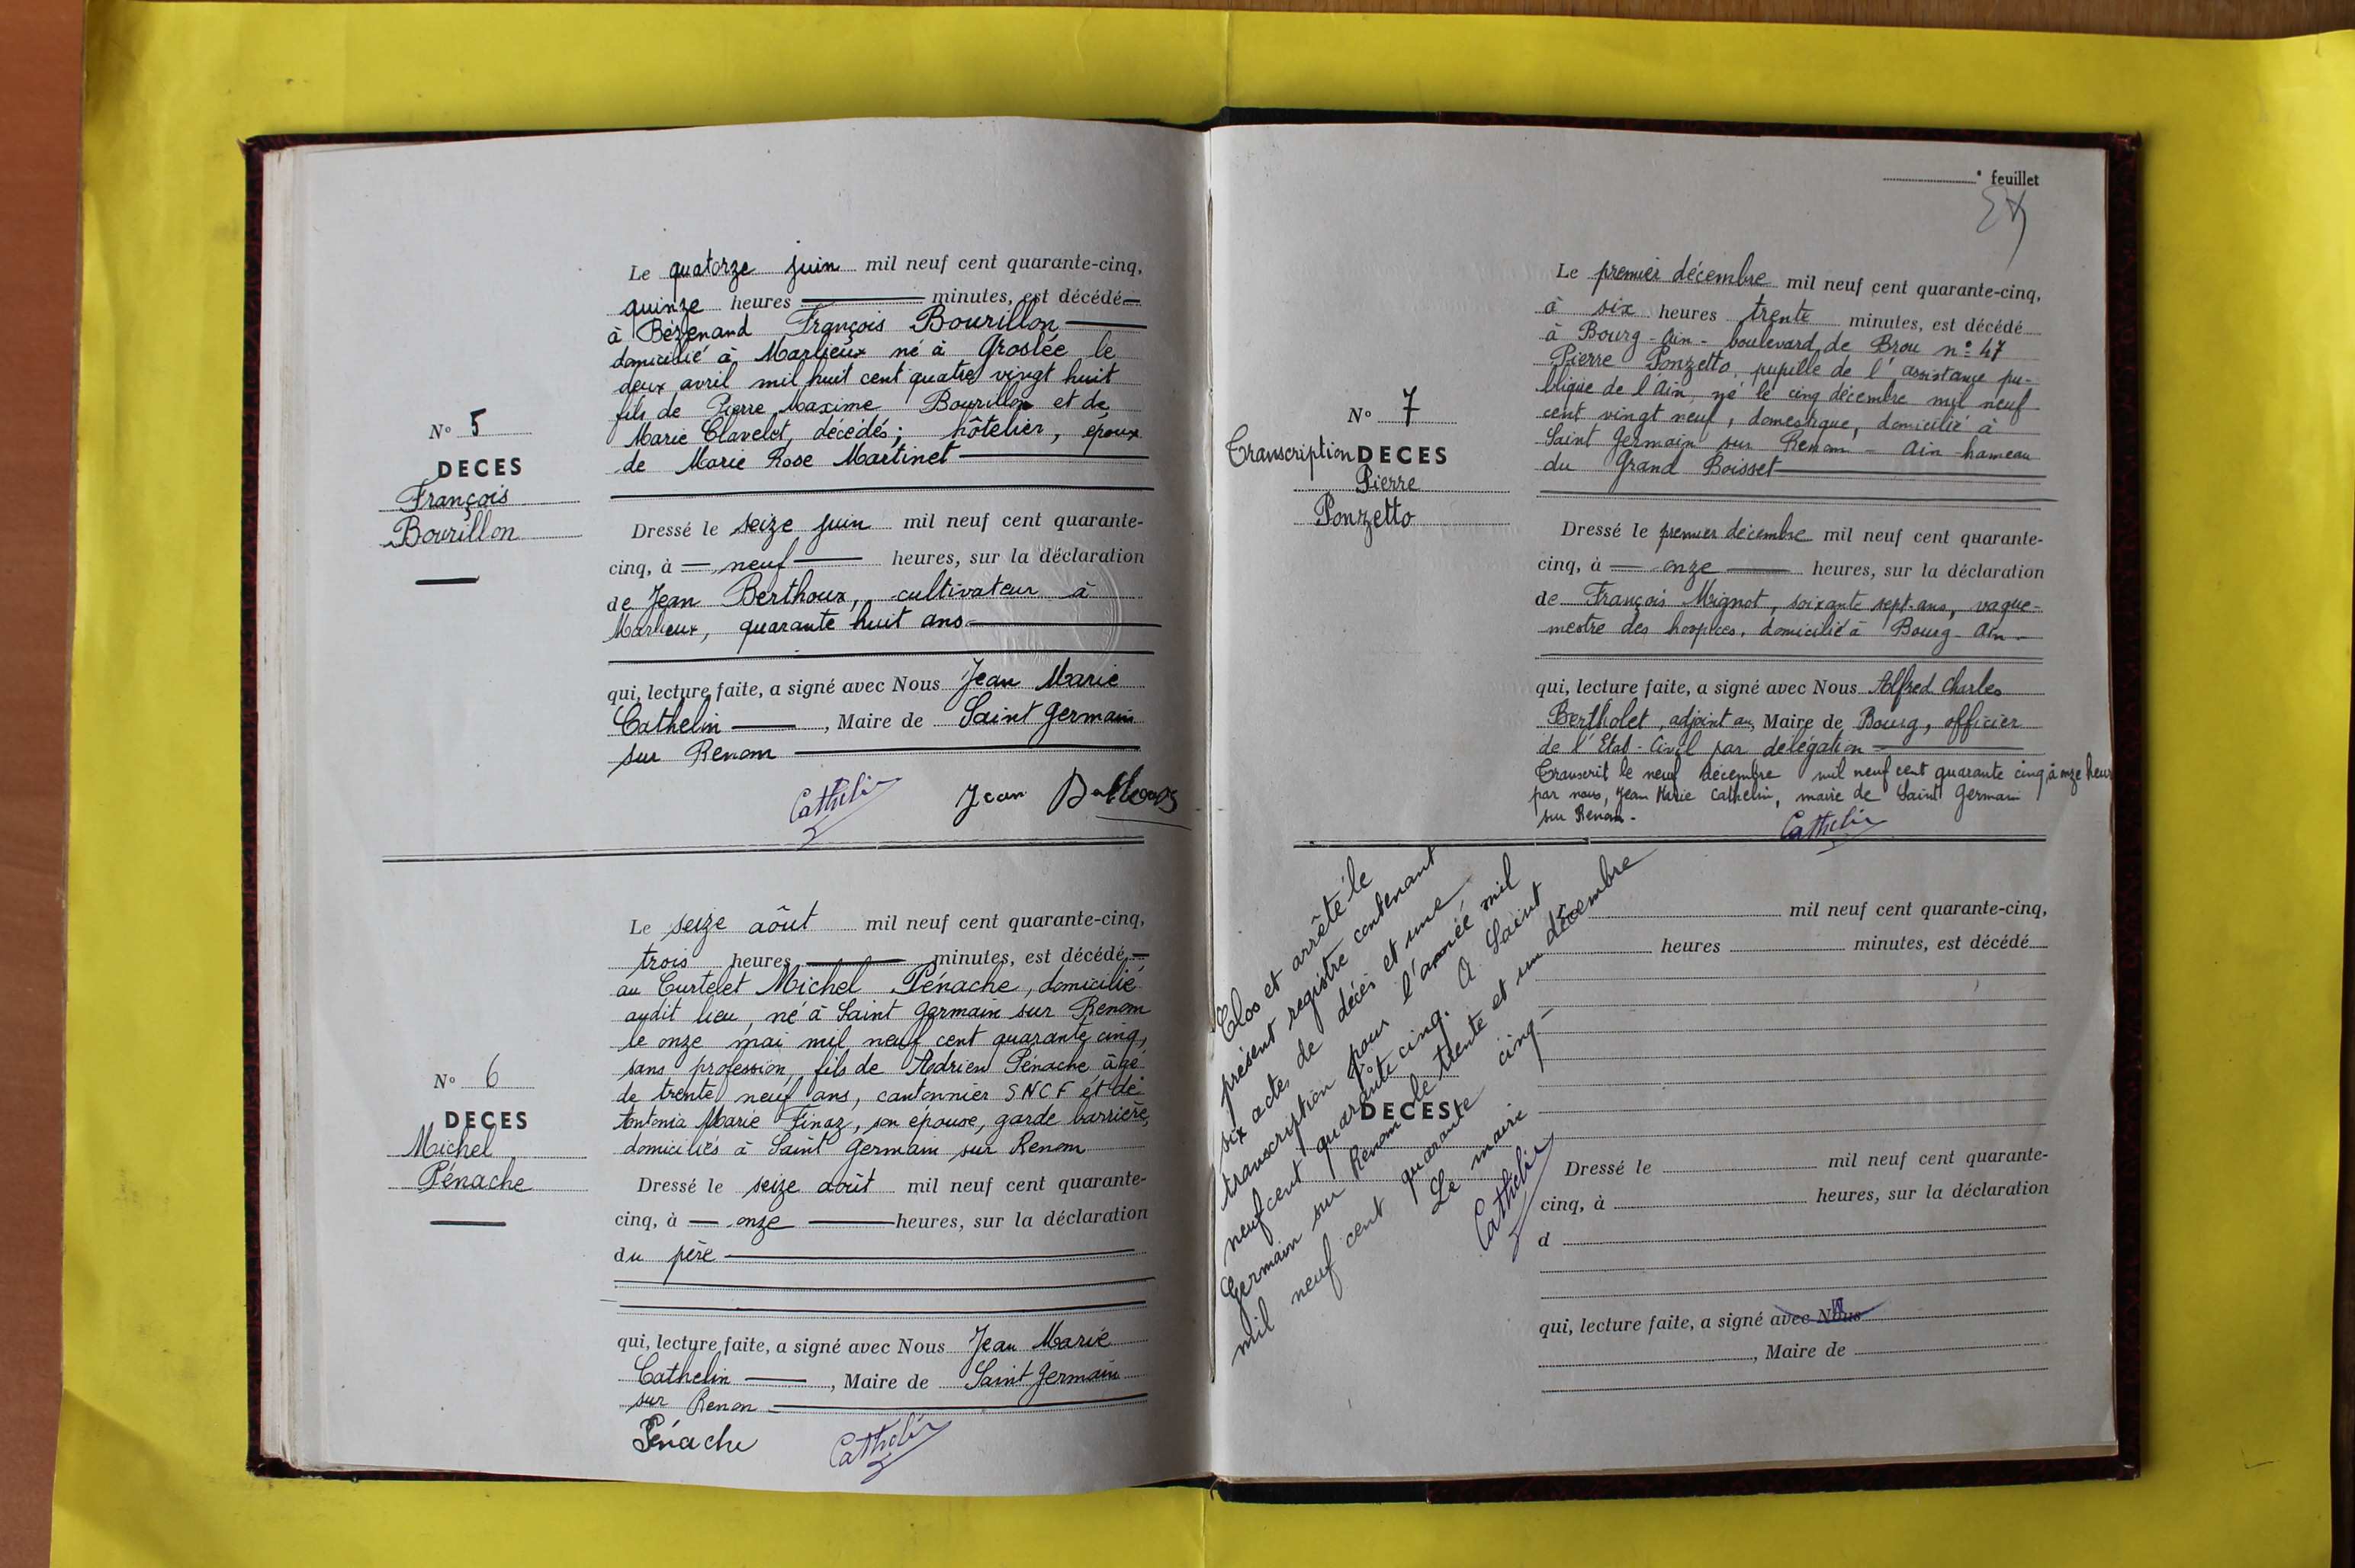 Le quatorze juin mil neuf cent quarante-cinq,
quinze heures minutes, est décédé
à Bézenand François Bourillon
domicilié à Marlieux né à Groslée le
deux avril mil huit cent quatre vingt huit
fils de Pierre Maxime Bourillon et de
Marie Clavelot, décédés; hôtelier, époux
de Marie Rose Martinet
N° 5
DECES
François
Bourillon
Dressé le seize juin mil neuf cent quarante-
cinq, à neuf heures, sur la déclaration
de Jean Berthoux, cultivateur à
Marlieux, quarante huit ans
qui, lecture faite, a signé avec Nous Jean Marie
Cathelin, Maire de Saint Germain
sur Renom
Cathelin Jean
Le seize aôut mil neuf cent quarante-cinq,
trois heures minutes, est décédé
au Curtelet Michel Pénache, domicilié
audit lieu, né à Saint Germain sur Renom
le onze mai mil neuf cent quarante cinq,
sans profession, fils de Adrien Pénache âgé
de trente neuf ans, cantonnier SNCF et de
Antonia Marie Finaz, son épouse, garde barrière,
domiciliés à Saint Germain sur Renom
N° 6
DECES
Michel
Pénache
Dressé le seize août mil neuf cent quarante-
cinq, à onze heures, sur la déclaration
du père
qui, lecture faite, a signé avec Nous Jean Marie
Cathelin, Maire de Saint Germain
sur Renon
Pénache Cathelin
feuillet
Le premier décembre mil neuf cent quarante-cinq,
à six heures trente minutes, est décédé
à Bourg - Ain - boulevard de Brou n° 47
Pierre Ponzetto, pupille de l'assistance pu-
blique de l'Ain, né le cinq décembre mil neuf
cent vingt neuf, domestique, domicilié à
Saint Germain sur Renom - Ain - hameau
du Grand Boisset
N° 7
Transcription DECES
Pierre
Ponzetto
Dressé le premier décembre mil neuf cent quarante-
cinq, à onze heures, sur la déclaration
de François Mignot, soixante sept ans, vague-
mestre des hospices, domicilié à Bourg - Ain -
qui, lecture faite, a signé avec Nous Alfred Charles
Bertholet, adjoint au Maire de Bourg, officier
de l'Etat-Civil par délégation
Transcrit le neuf décembre mil neuf cent quarante cinq à onze heur
par nous, Jean Marie Cathelin, maire de Saint Germain
sur Renom.
Cathelin
Clos et arrêté le
présent registre contenant
six actes de décès et une
transcription pour l'année mil
neuf cent quarante cinq. A Saint
Germain sur Renom le trente et un décembre
mil neuf cent quarante cinq -
Le maire
Cathelin
mil neuf cent quarante-cinq,
heures minutes, est décédé
N°
DECES
Dressé le mil neuf cent quarante-
cinq, à heures, sur la déclaration
d
qui, lecture faite, a signé avec Nous
, Maire de